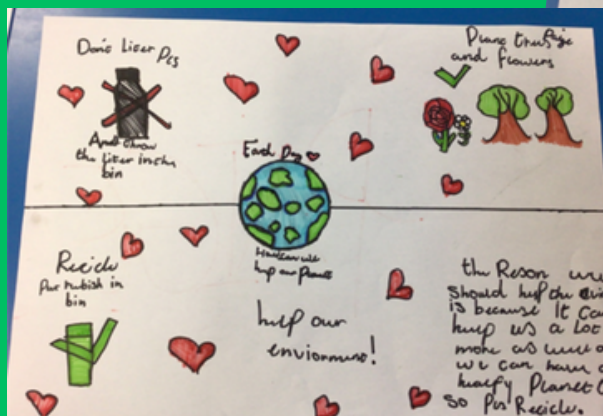 Don't Liter Pls
And throw
the liter in the
bin
Plant trees
and flowers
Earth Day
How can we
help our Planet
Recicle
Put rubish in
bin
help our
envionment!
the Reson
should help the
is because It can
help us a lot
more as well
we can have a
Planet
so Pls Recicle.